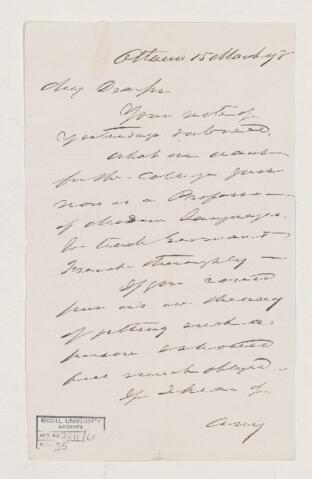 Ottawa 15 March 78
My Dear Sir
Your note of
yesterday received.
What we want
for the College just
now is a Professor
of Modern Languages.
To teach German &
French thoroughly —
If you could
put us in the way
of getting such a
person I should
feel much obliged —
If I hear of
any
McGILL UNIVERSITY
ARCHIVES
ACC. NO. 2211/60
REF. 35